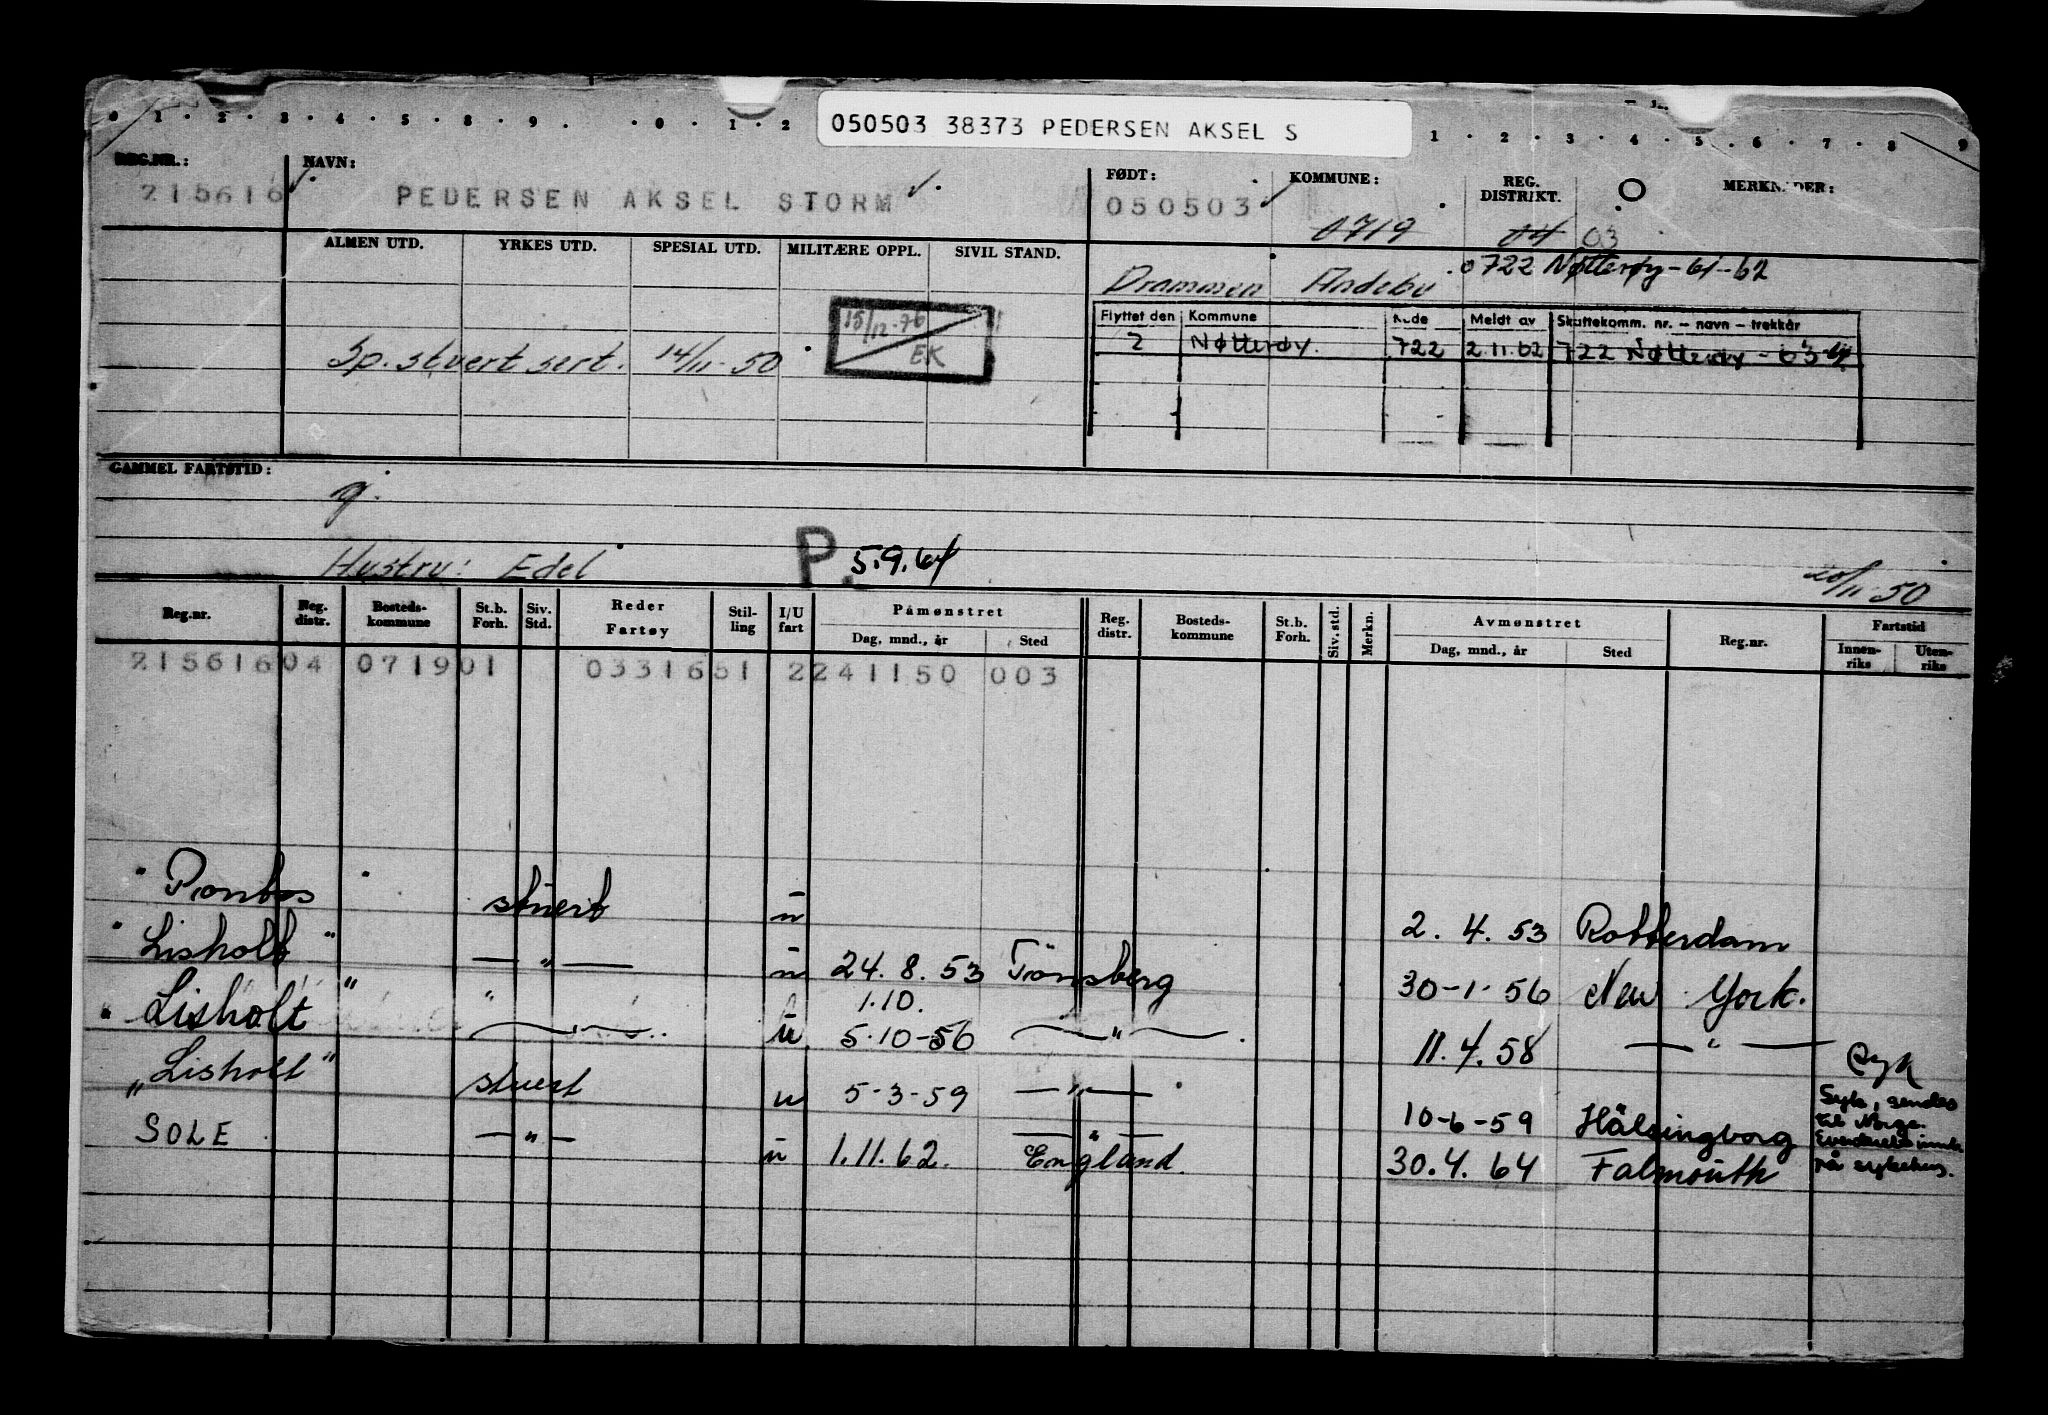 050503 38373 PEDERSEN AKSEL S
REG.NR.: NAVN: FØDT: KOMMUNE: REG. DISTRIKT. MERKNADER:
215616 PEDERSEN AKSEL STORM 050503 0719 04 03
ALMEN UTD. YRKES UTD. SPESIAL UTD. MILITÆRE OPPL. SIVIL STAND.
Drammen Andebu 0722 Nøtterøy-61-62
15/12-76 EK
Flyttet den Kommune Kode Meldt av Skattekomm. nr. – navn – trekkår
2 Nøtterøy. 722 2.11.62 722 Nøtterøy - 63-64
Sp. stuert sert. 14/11-50
GAMMEL FARTSTID:
g.
Hustru: Edel P. 5.9.64 20/11-50
Reg.nr. Reg. distr. Bosteds-kommune St.b. Forh. Siv. Std. Reder Fartøy Stil-ling I/U fart Påmønstret Reg. distr. Bosteds-kommune St.b. Forh. Siv. std. Merkn. Avmønstret Reg.nr. Fartstid
Dag, mnd., år Sted Dag, mnd., år Sted Innen-riks Uten-riks
215616 04 0719 01 0331651 2 241150 003
" " stuert u 2. 4. 53 Rotterdam
" Lisholt " — " — u 24. 8. 53 Tönsberg 30-1-56 New York.
1.10.
" Lisholt " — " — u 5.10-56 — " — 11.4.58 — " — Syk
" Lisholt " stuert u 5-3-59 — " — 10-6-59 Hälsingborg Syk, sendes til Norge. innl. på sykehus.
SOLE — " — u 1.11.62. England. 30.4.64 Falmouth